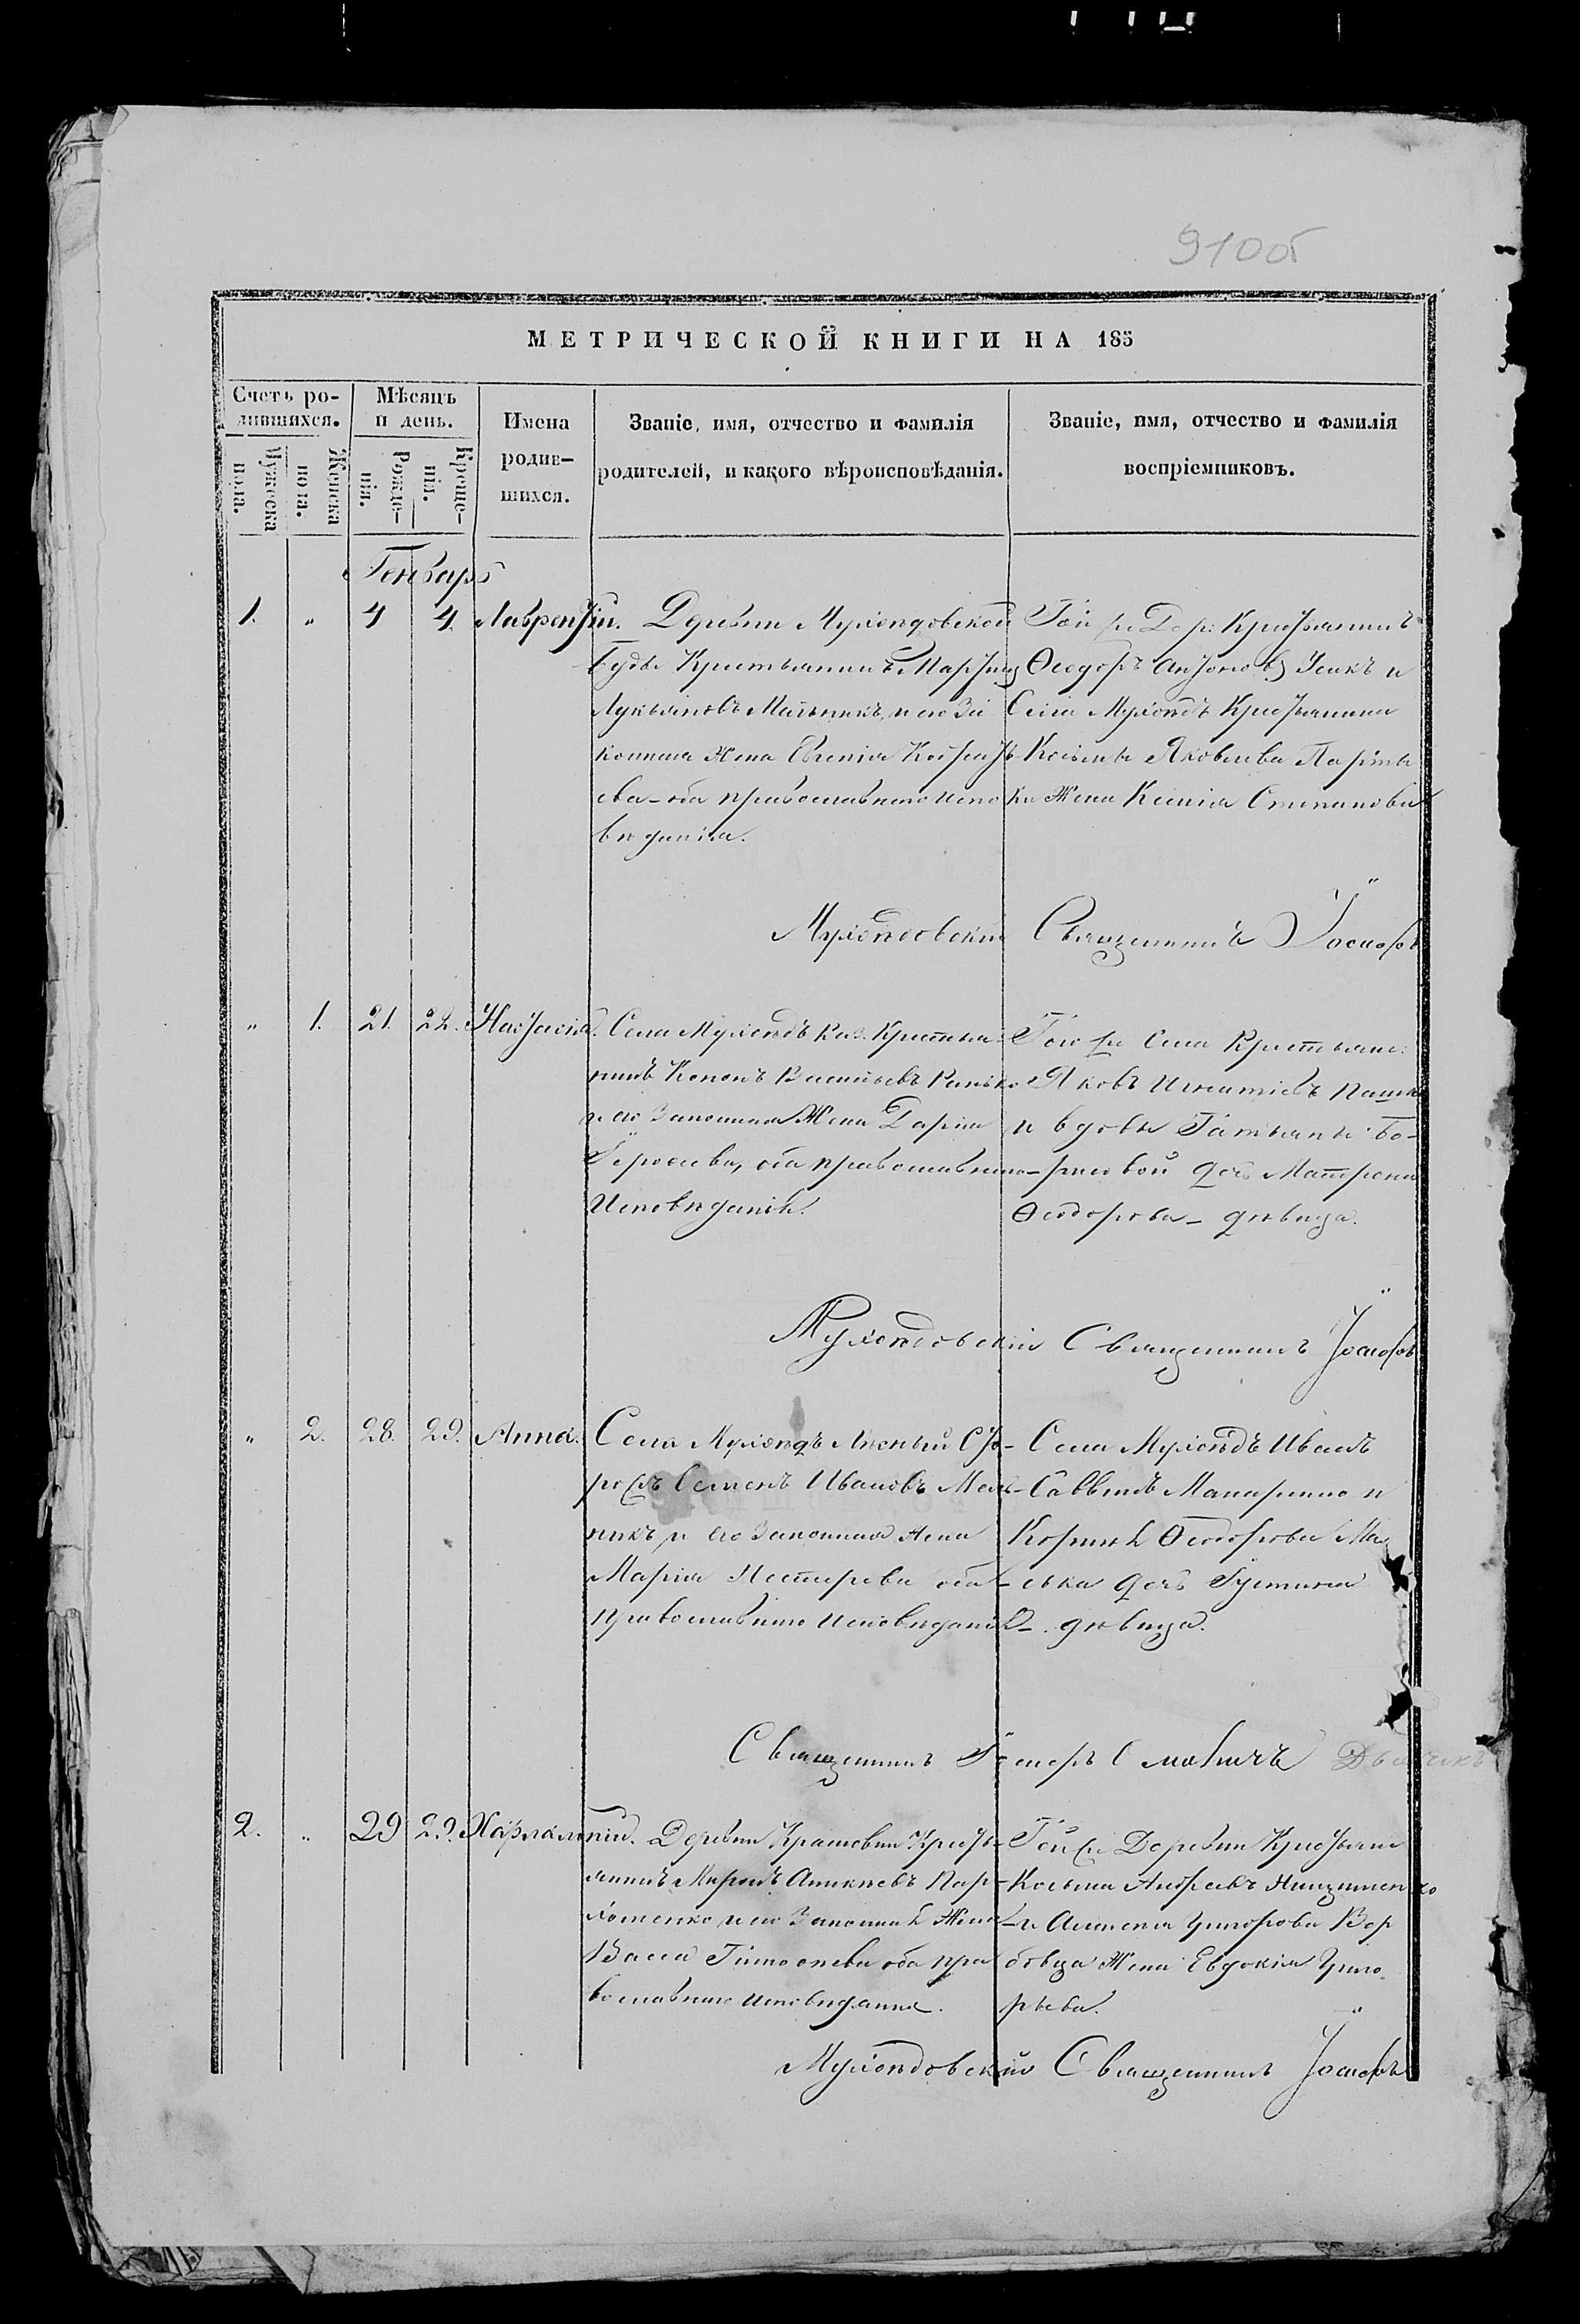 910об
МЕТРИЧЕСКОЙ КНИГИ НА 185
Счетъ ро-
лившихся.
Мѣсяцъ
и день.
Имена
родив-
шихся.
Званіе, имя, отчество и фамилія
родителей, и какого вѣроисповѣданія.
Званіе, имя, отчество и фамилія
воспріемниковъ.
Мужеска
пола.
Женска
пола.
Рожде-
нія.
Креще-
нія.
Генварь
1. " 4 4. Лаврентій. Деревни Мухоѣдовской
Буды Крестьянинъ Мартинъ
Лукьяновъ Мельникъ, и его За
конная Жена Евгенія Кондрать
ева - оба православнаго испо
вѣданія.
Той же Дер: Крестьянинъ
Ѳеодоръ Антоновъ Усикъ и
Села Мухоѣдъ Крестьянина
Косьмы Яковлева
Жена Ксенія Степанова
Мухоѣдовскій Священникъ Іосифъ
" 1. 21. 22. Настасія. Села Мухоѣдъ Каз. Крестья-
нинъ Кононъ Васильевъ
и его Законная Жена Дарія
оба православнаго
Исповѣданія.
Того же Села Крестьянинъ
Яковъ Игнатіевъ
и вдовы Татьяны Бо-
рисовой дочь Матрона
Ѳеодорова - дѣвица.
Мухоѣдовскій Священникъ Іосифъ
" 2. 28. 29. Анна. Села Мухоѣдъ Лѣсный Сто-
рожъ Семенъ Ивановъ Мель-
никъ, и его Законная Жена
Марія Нестерова оба
православнаго Исповѣданія.
Села Мухоѣдъ Иванъ
Саввинъ и
Ѳеодорова
дочь Іустина
- дѣвица.
Священникъ Іосифъ
2. " 29 29. Харлампій. Деревни Крестья-
нинъ Миронъ Аникіевъ Пар-
хоменко, и его Законная Жена
Васса Тимоѳеева оба пра
вославнаго исповѣданія.
Той же Деревни Крестьянинъ
Косьма Андреевъ
и Алексея Григорова Вер
бовца Жена Евдокія Григо-
рьева.
Мухоѣдовскій Священникъ Іосифъ